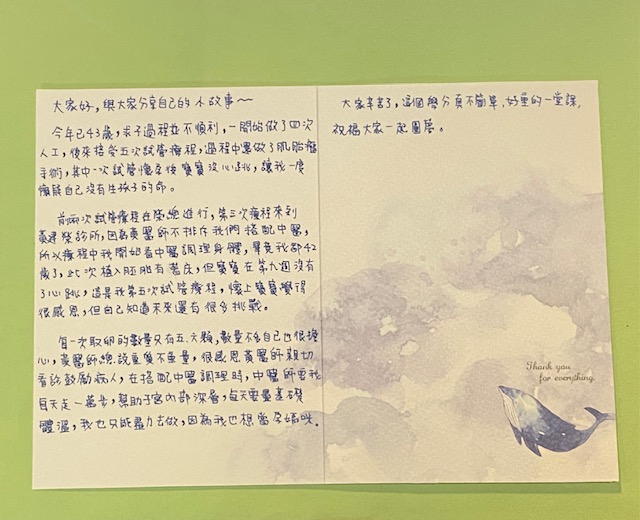 大家好，與大家分享自己的小故事～
今年已43歲，求子過程並不順利，一開始做了四次
人工，後來接受五次試管療程，過程中還做了肌胎瘤
手術，其中一次試管懷孕後寶寶沒心跳，讓我一度
懷疑自己沒有生孩子的命。
前兩次試管療程在榮總進行，第三次療程來到
黃建榮診所，因為黃醫師不排斥我們搭配中醫，
所以療程中我開始看中醫調理身體，畢竟我都42
歲了，此次植入胚胎有著床，但寶寶在第九週沒有
了心跳，這是我第五次試管療程，懷上寶寶覺得
很感恩，但自己知道未來還有很多挑戰。
每一次取卵的數量只有五、六顆，數量不多自己也很擔
心，黃醫師總說重質不重量，很感恩黃醫師親切
看診鼓勵病人，在搭配中醫調理時，中醫師要我
每天走一萬步，幫助子宮內部深層，每天要量基礎
體溫，我也只能盡力去做，因為我也想當孕媽咪。
大家辛苦了，這個學分真不簡單，好重的一堂課，
祝福大家一起圓夢。
Thank you
for everything.